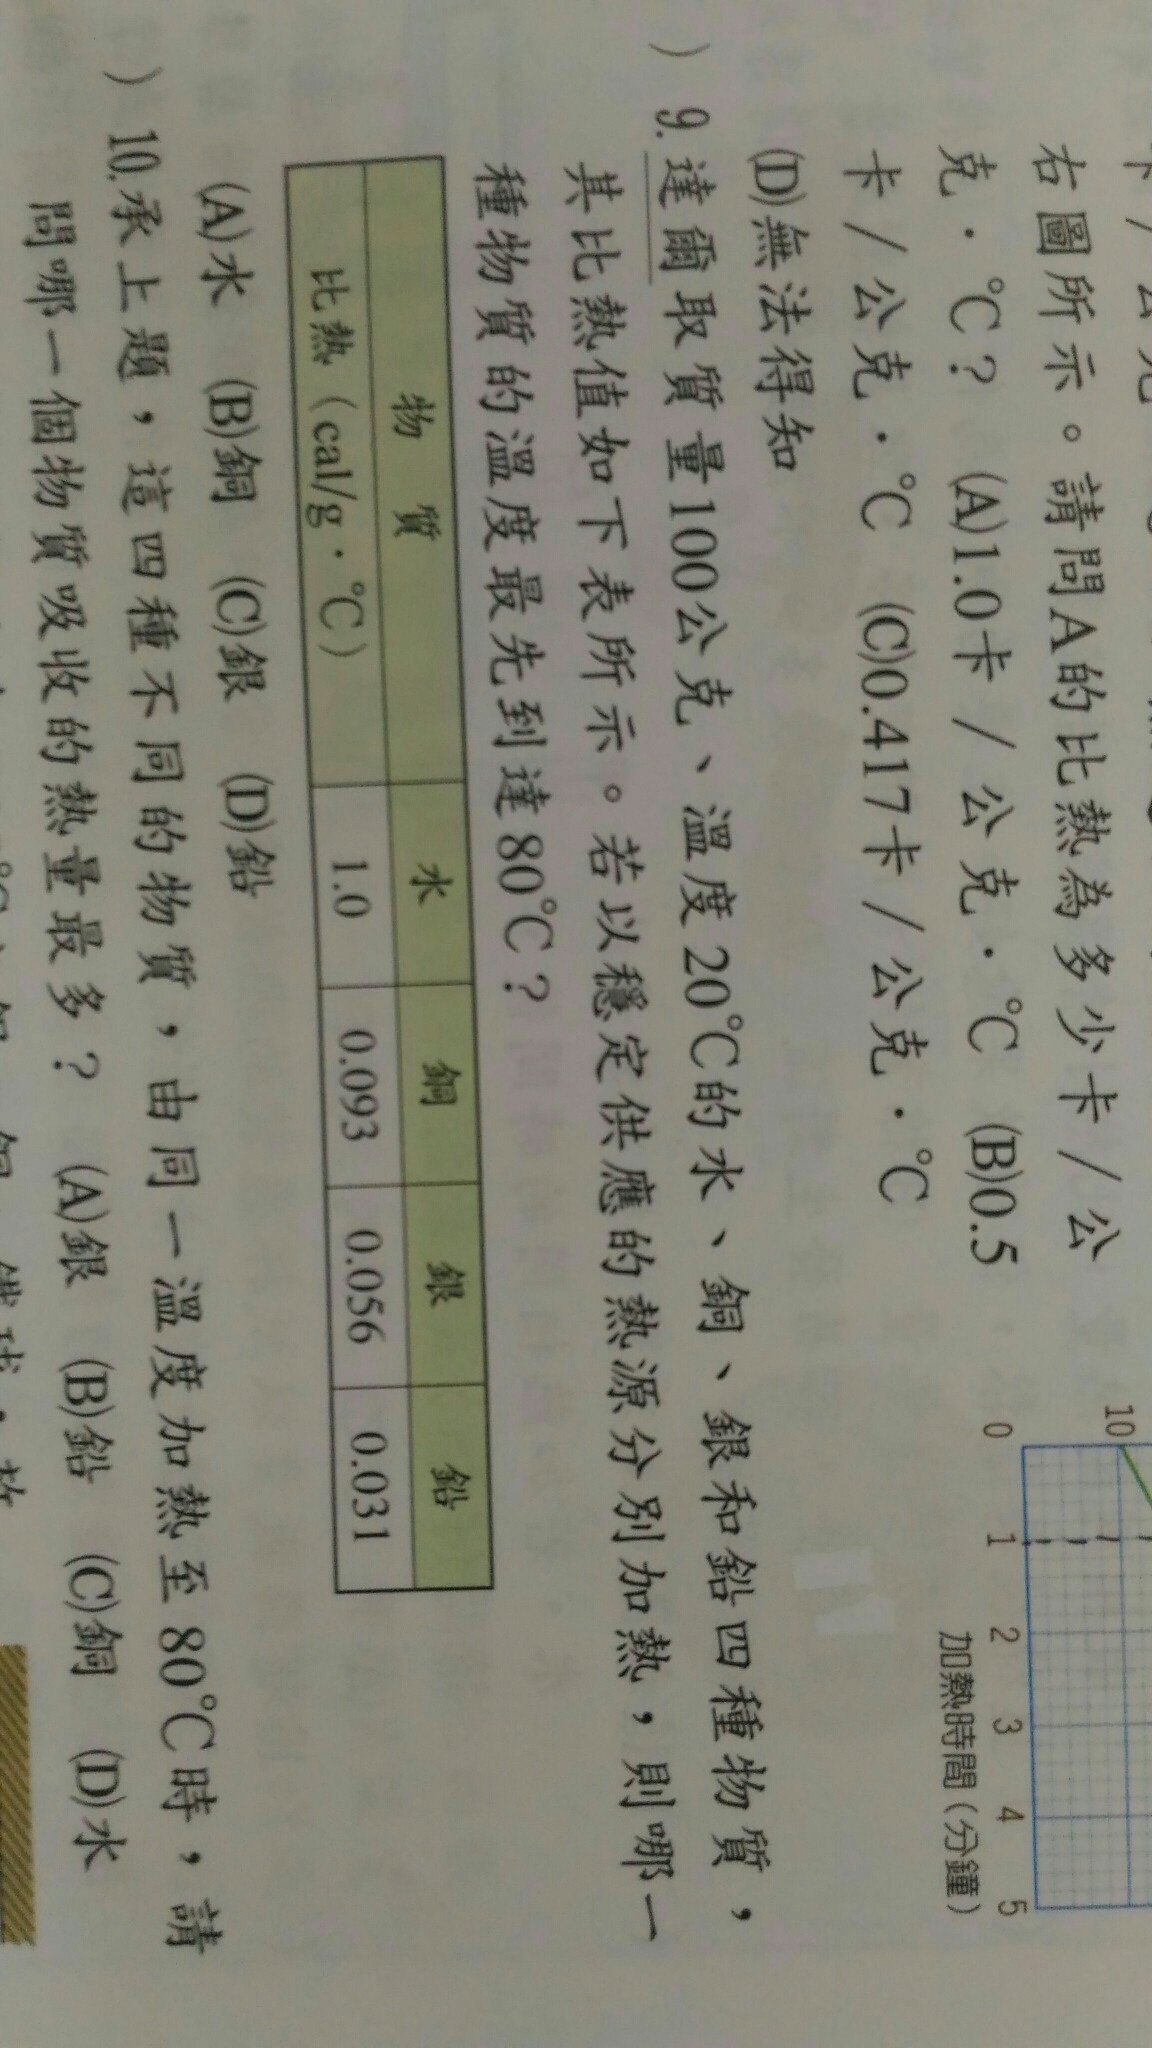 右圖所示。請問A的比熱為多少卡/公
克．℃？ (A)1.0卡/公克．℃ (B)0.5
卡/公克．℃ (C)0.417卡/公克．℃
(D)無法得知
10
0 1 2 3 4 5
加熱時間(分鐘)
) 9. 達爾取質量100公克、溫度20℃的水、銅、銀和鉛四種物質，
其比熱值如下表所示。若以穩定供應的熱源分別加熱，則哪一
種物質的溫度最先到達80℃？
物 質 水 銅 銀 鉛
比熱(cal/g．℃) 1.0 0.093 0.056 0.031
(A)水 (B)銅 (C)銀 (D)鉛
) 10. 承上題，這四種不同的物質，由同一溫度加熱至80℃時，請
問哪一個物質吸收的熱量最多？ (A)銀 (B)鉛 (C)銅 (D)水